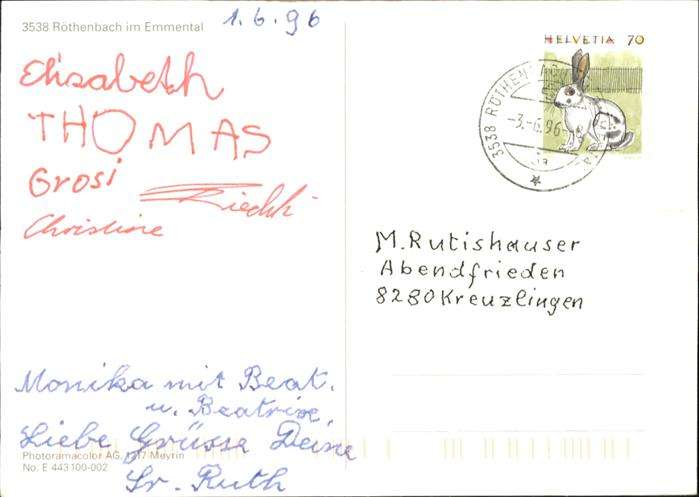 3538 Röthenbach im Emmental
1.6.96
Elisabeth
THOMAS
Grosi
Christine
Monika mit Beat.
u. Beatrixe,
Liebe Grüsse Deine
Photoramacolor AG, 1317 Meyrin
No. E 443100-002
Sr. Ruth
HELVETIA 70
3538 RÖTHEN
-3.-6.96-
M. Rutishauser
Abendfrieden
8280 Kreuzlingen